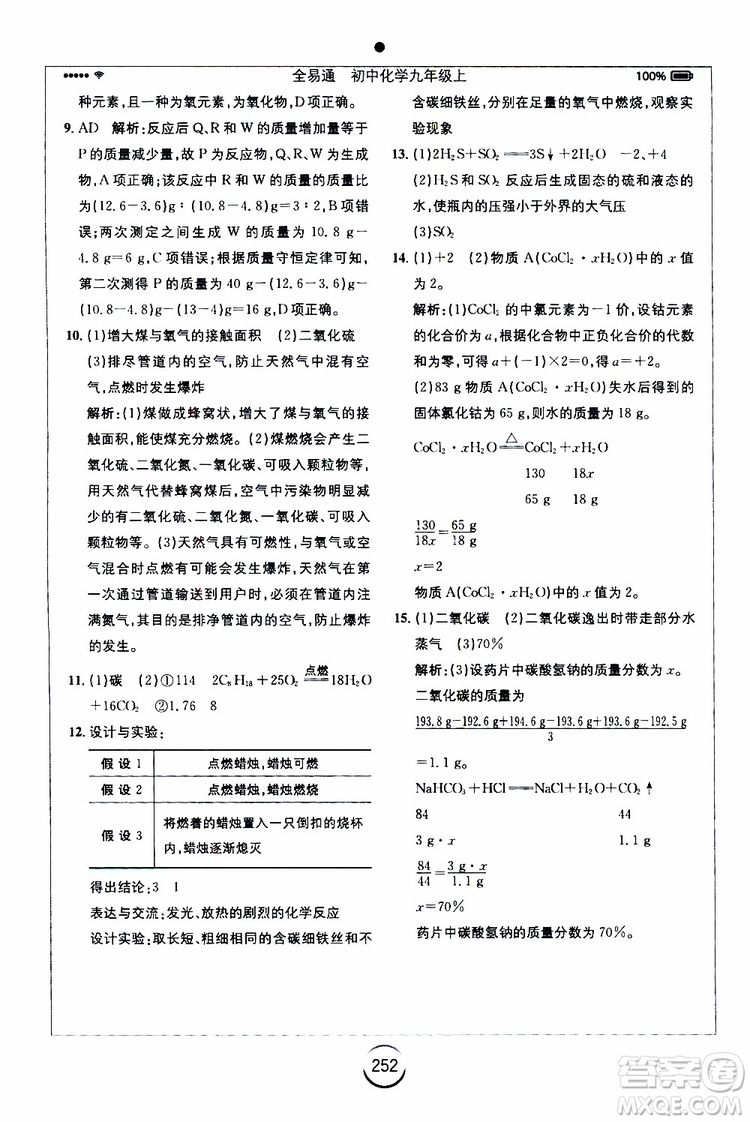 全易通 初中化学九年级上
100%
种元素,且一种为氧元素,为氧化物,D项正确。
9. AD 解析:反应后Q、R和W的质量增加量等于
P的质量减少量,故P为反应物,Q、R和W为生成
物,A项正确;该反应中,Q和R的质量的质量比
为(12.6-3.6)g:(10.8-4.8)g=3:2,B项错
误;两次测定之间生成W的质量为10.8 g-
4.8 g=6 g,C项错误;根据质量守恒定律可知,
第二次测得P的质量为40 g-(12.6-3.6)g-
(10.8-4.8)g-(13-4)g=16 g,D项正确。
10. (1)增大煤与氧气的接触面积 (2)二氧化硫
(3)排尽管道内的空气,防止天然气中混有空
气,点燃时发生爆炸
解析:(1)煤做成蜂窝状,增大了煤与氧气的接
触面积,能使煤充分燃烧。(2)煤燃烧会产生二
氧化硫、二氧化氮、一氧化碳、可吸入颗粒物等,
用天然气代替蜂窝煤后,空气中污染物质量减
少的有二氧化硫、二氧化氮、一氧化碳、可吸入
颗粒物等。(3)天然气具有可燃性,与氧气或空
气混合时遇到明火可能会发生爆炸。天然气第
一次通过管道输送到用户时,必须在管道内注
满氮气,其目的是排净管道内的空气,防止爆炸
的发生。
11. (1)碳 (2)①114 2C₈H₁₈+25O₂ 点燃 18H₂O
+16CO₂ ②1.76 8
12. 设计与实验:
假设1 点燃蜡烛,蜡烛可燃
假设2 点燃蜡烛,蜡烛燃烧
假设3 将燃着的蜡烛置入一只倒扣的烧杯
内,蜡烛逐渐熄灭
得出结论:3 1
表达与交流:发光、放热的剧烈的化学反应
设计实验:取长短、粗细相同的含碳细铁丝和不
含碳细铁丝,分别在足量的氧气中燃烧,观察实
验现象
13. (1)2H₂S+SO₂══3S↓+2H₂O -2、+4
(2)H₂S和SO₂反应后生成固态的硫和液态的
水,使瓶内的压强小于外界的大气压
(3)SO₂
14. (1)+2 (2)物质A(CoCl₂·xH₂O)中的x值
为2。
解析:(1)CoCl₂中的氯元素为-1价,设钴元素
的化合价为a,根据化合物中正负化合价的代数
和为零,可得a+(-1)×2=0,a=+2。
(2)83 g物质A(CoCl₂·xH₂O)失水后得到的
固体氯化钴为65 g,则水的质量为18 g。
CoCl₂·xH₂O △══ CoCl₂+xH₂O
130 18x
65 g 18 g
130/18x=65 g/18 g
x=2
物质A(CoCl₂·xH₂O)中的x值为2。
15. (1)二氧化碳 (2)二氧化碳逸出时带走部分水
蒸气 (3)70%
解析:(3)设药片中碳酸氢钠的质量分数为x。
二氧化碳的质量为
193.8 g-192.6 g+194.6 g-193.6 g+193.6 g-192.5 g
3
=1.1 g。
NaHCO₃+HCl══NaCl+H₂O+CO₂↑
84 44
3 g·x 1.1 g
84/44=3 g·x/1.1 g
x=70%
药片中碳酸氢钠的质量分数为70%。
252
答案圈